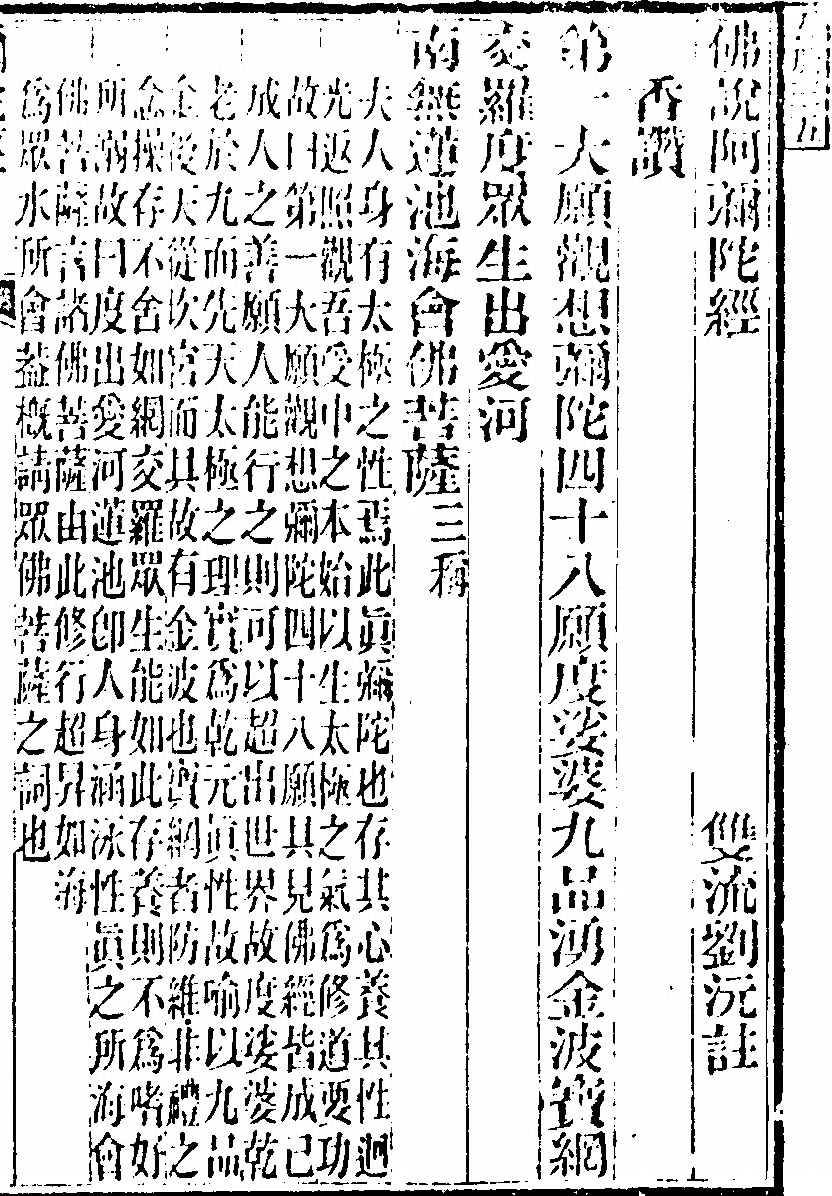 佛說阿彌陀經
雙流劉沅註
香讚
第一大願觀想彌陀四十八願度娑婆九品湧金波寶網
交羅度眾生出愛河
南無蓮池海會佛菩薩三稱
夫人身有太極之性焉此眞彌陀也存其心養其性迴
光返照觀吾受中之本始以生太極之氣爲修道要功
故曰第一大願觀想彌陀四十八願具見佛經皆成己
成人之善願人能行之則可以超出世界故度娑婆乾
老於九而先天太極之理實爲乾元眞性故喻以九品
金後天從坎宮而具故有金波也寶網者防維非禮之
念操存不舍如網交羅眾生能如此存養則不爲嗜好
所溺故曰度出愛河蓮池卽人身涵泳性眞之所海會
佛菩薩言諸佛菩薩由此修行超昇如海
爲眾水所會蓋概請眾佛菩薩之詞也